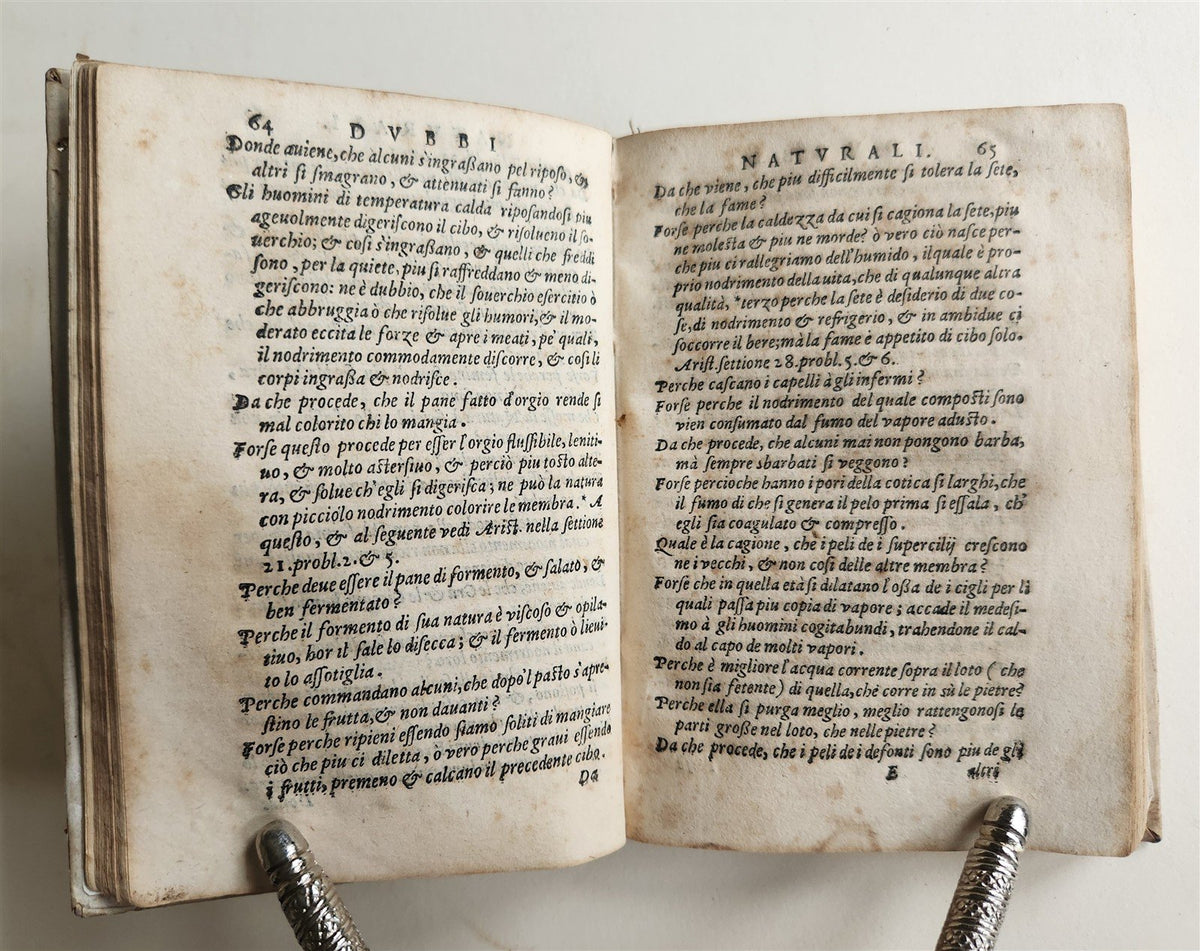 64 DVBBI
Donde auiene, che alcuni s'ingraßano pel riposo, &
altri si smagrano, & attenuati si fanno?
Gli huomini di temperatura calda riposandosi piu
ageuolmente digeriscono il cibo, & risolueno il so-
uerchio; & cosi s'ingraßano, & quelli che freddi
sono, per la quiete, piu si raffreddano & meno di-
geriscono: ne è dubbio, che il souerchio esercitio ò
che abbruggia ò che risolue gli humori, & il mo-
derato eccita le forze & apre i meati, pe' quali,
il nodrimento commodamente discorre, & cosi li
corpi ingraßa & nodrisce.
Da che procede, che il pane fatto d'orgio rende si
mal colorito chi lo mangia.
Forse questo procede per esser l'orgio flussibile, leniti-
uo, & molto astersiuo, & perciò piu tosto alte-
ra, & solue ch'egli si digerisca; ne può la natura
con picciolo nodrimento colorire le membra.* A
questo, & al seguente vedi Arist. nella settione
21.probl.2.& 5.
Perche deue essere il pane di formento, & salato, &
ben fermentato?
Perche il formento di sua natura è viscoso & opila-
tiuo, hor il sale lo disecca; & il fermento ò lieui-
to lo assotiglia.
Perche commandano alcuni, che dopò'l pasto s'apre-
stino le frutta, & non dauanti?
Forse perche ripieni essendo siamo soliti di mangiare
ciò che piu ci diletta, ò vero perche graui essendo
i frutti, premeno & calcano il precedente cibo.
Da
NATVRALI. 65
Da che viene, che piu difficilmente si tolera la sete,
che la fame?
Forse perche la caldezza da cui si cagiona la sete, piu
ne molesta & piu ne morde? ò vero ciò nasce per-
che piu ci rallegriamo dell'humido, ilquale è pro-
prio nodrimento della uita, che di qualunque altra
qualità, *terzo perche la sete è desiderio di due co-
se, di nodrimento & refrigerio, & in ambidue ci
soccorre il bere; mà la fame è appetito di cibo solo.
Arist. settione 28.probl.5.& 6.
Perche cascano i capelli à gli infermi?
Forse perche il nodrimento del quale composti sono
vien consumato dal fumo del vapore adusto.
Da che procede, che alcuni mai non pongono barba,
mà sempre sbarbati si veggono?
Forse percioche hanno i pori della cotica si larghi, che
il fumo di che si genera il pelo prima si essala, ch'
egli sia coagulato & compresso.
Quale è la cagione, che i peli de i supercilij crescono
ne i vecchi, & non cosi delle altre membra?
Forse che in quella età si dilatano l'oßa de i cigli per li
quali passa piu copia di vapore; accade il medesi-
mo à gli huomini cogitabundi, trahendone il cal-
do al capo de molti vapori.
Perche è migliore l'acqua corrente sopra il loto (che
non sia fetente) di quella, che corre in sù le pietre?
Perche ella si purga meglio, meglio rattengonosi le
parti große nel loto, che nelle pietre?
Da che procede, che i peli de i defonti sono piu de gli
E altri